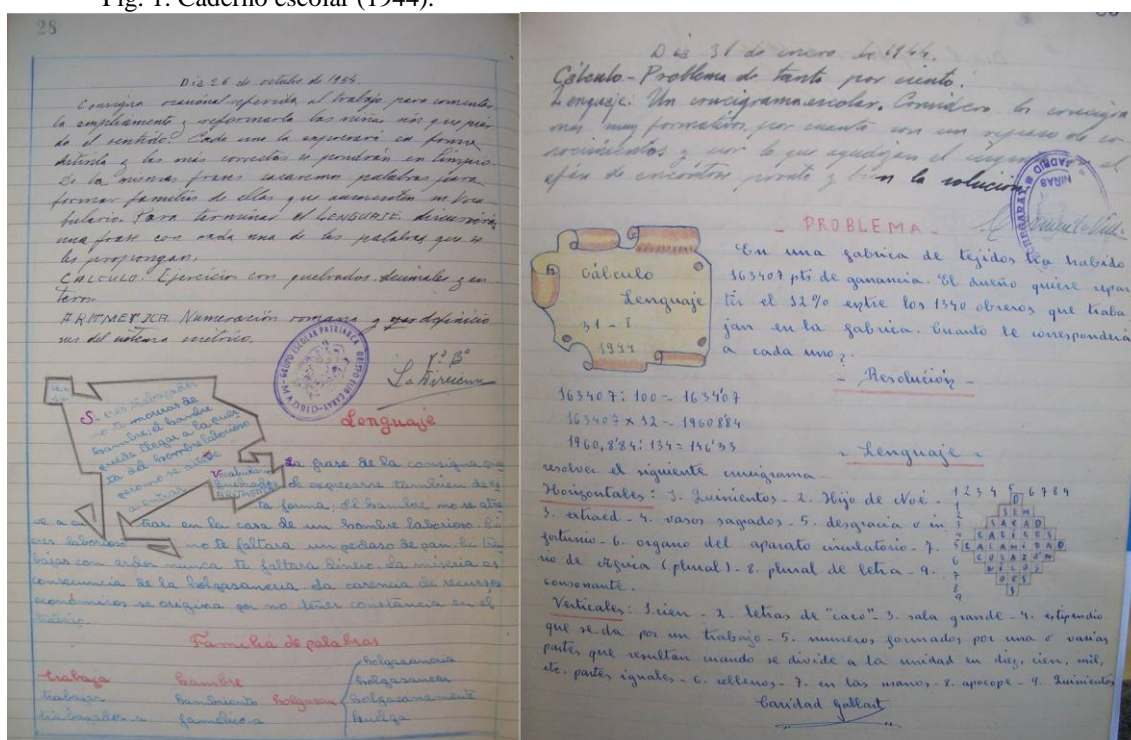 Fig. 1. Caderno escolar (1944).
28
Dia 26 de octubre de 1954.
Consigna semanal referida al trabajo para comentar
la ampliamente y reformarla las niñas sin que pier
da el sentido. Cada una la expresará en forma
distinta y las más correctas se pondrán en limpio.
De la misma frase sacaremos palabras para
formar familias de ellas que aumenten su voca
bulario. Para terminar el LENGUAJE discurrirán
una frase con cada una de las palabras que se
les propongan.
CALCULO. Ejercicio con quebrados decimales y en
teros.
ARITMETICA. Numeración romana y definicio
nes del sistema métrico.
GRUPO ESCOLAR PATRIARCA OBISPO EIJO GARAY
Vº Bº
La Directora
Si eres trabajador
no te mueras de
hambre; el hambre
puede llegar a la puer
ta del hombre laborioso
pero no se atreve
a entrar
Vocabulario
Quebrados
ARITMETICA
Lenguaje
La frase de la consigna
de expresarse tambien de es
ta forma; El hambre no se atre
ve a entrar en la casa de un hombre laborioso. Si
eres laborioso no te faltara un pedaso de pan. Si tra
bajas con ardor nunca te faltara dinero. La miseria es
consecuencia de la holgasaneria. La carencia de recursos
económicos se origina por no tener constancia en el
trabajo.
Familia de palabras
trabaja hambre
trabajar hambriento holgasan
trabajador-a famelico-a
holgasaneria
holgasanamente
huelga
Dia 31 de enero de 1944.
Cálculo - Problema de tanto por ciento.
Lenguaje: Un crucigrama escolar. Considero los crucigra
mas muy formativos, por cuanto son un repaso de co-
nocimientos y por lo que agudizan el ingenio el
afán de encontrar pronto y bien la solucion
MADRID
NIÑAS
Cálculo
Lenguaje
31 - I
1944
- PROBLEMA -
En una fabrica de tejidos ha habido
163407 pts de ganancia. El dueño quiere repar
tir el 12% entre los 1340 obreros que traba
jan en la fabrica. Cuanto le corresponderá
a cada uno?
- Resolución -
163407 : 100 = 1634'07
1634'07 x 12 = 19608'84
1960,8'84 : 134 = 146'33
- Lenguaje -
resolver el siguiente crucigrama
Horizontales: 1. Quinientos - 2. Hijo de Noé -
3. extraed - 4. vasos sagrados - 5. desgracia o in
fortunio - 6. organo del aparato circulatorio - 7.
rio de (plural) - 8. plural de letra - 9.
consonante.
1 2 3 4 5 6 7 8 9
1 D
2 SEM
3 SACAD
4 CALICES
5 CALAMIDAD
6 CORAZON
7 NILOS
8 OES
9 S
Verticales: 1. cien - 2. letras de "caco" - 3. sala grande - 4. estipendio
que se da por un trabajo - 5. numeros formados por una o varias
partes que resultan cuando se divide a la unidad en diez, cien, mil,
etc. partes iguales - 6. rellenos - 7. en las manos - 8. apocope - 9. Quinientos
Caridad Gallart